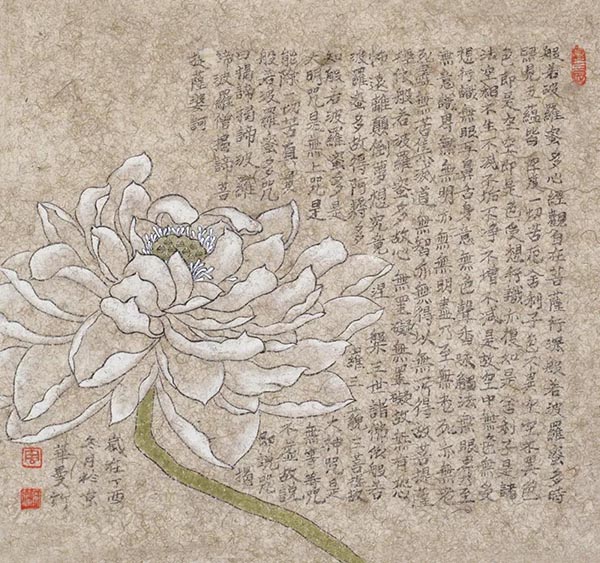 般若波羅蜜多心經觀自在菩薩行深般若波羅蜜多時
照見五蘊皆空度一切苦厄舍利子色不異空空不異色
色即是空空即是色受想行識亦復如是舍利子是諸
法空相不生不滅不垢不淨不增不減是故空中無色無受
想行識無眼耳鼻舌身意無色聲香味觸法無眼界乃至
無意識界無無明亦無無明盡乃至無老死亦無老
死盡無苦集滅道無智亦無得以無所得故菩提薩
埵依般若波羅蜜多故心無罣礙無罣礙故無有恐
怖遠離顛倒夢想究竟涅槃三世諸佛依般若
波羅蜜多故得阿耨多羅三藐三菩提故
知般若波羅蜜多是大神咒是
大明咒是無上咒是無等等咒
能除一切苦真實不虛故說
般若波羅蜜多咒即說咒
曰揭諦揭諦波羅揭
諦波羅僧揭諦菩
故薩婆訶
歲在丁酉
冬月於京
華曼